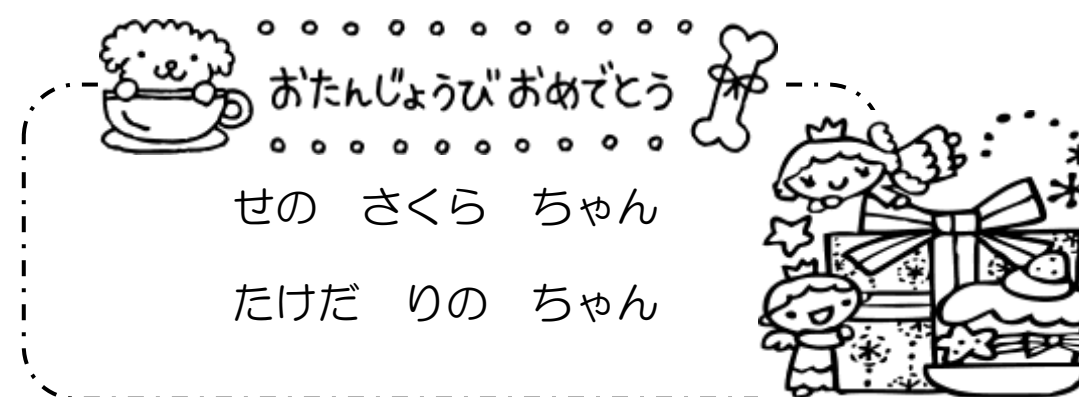 おたんじょうび おめでとう
せの　さくら　ちゃん
たけだ　りの　ちゃん